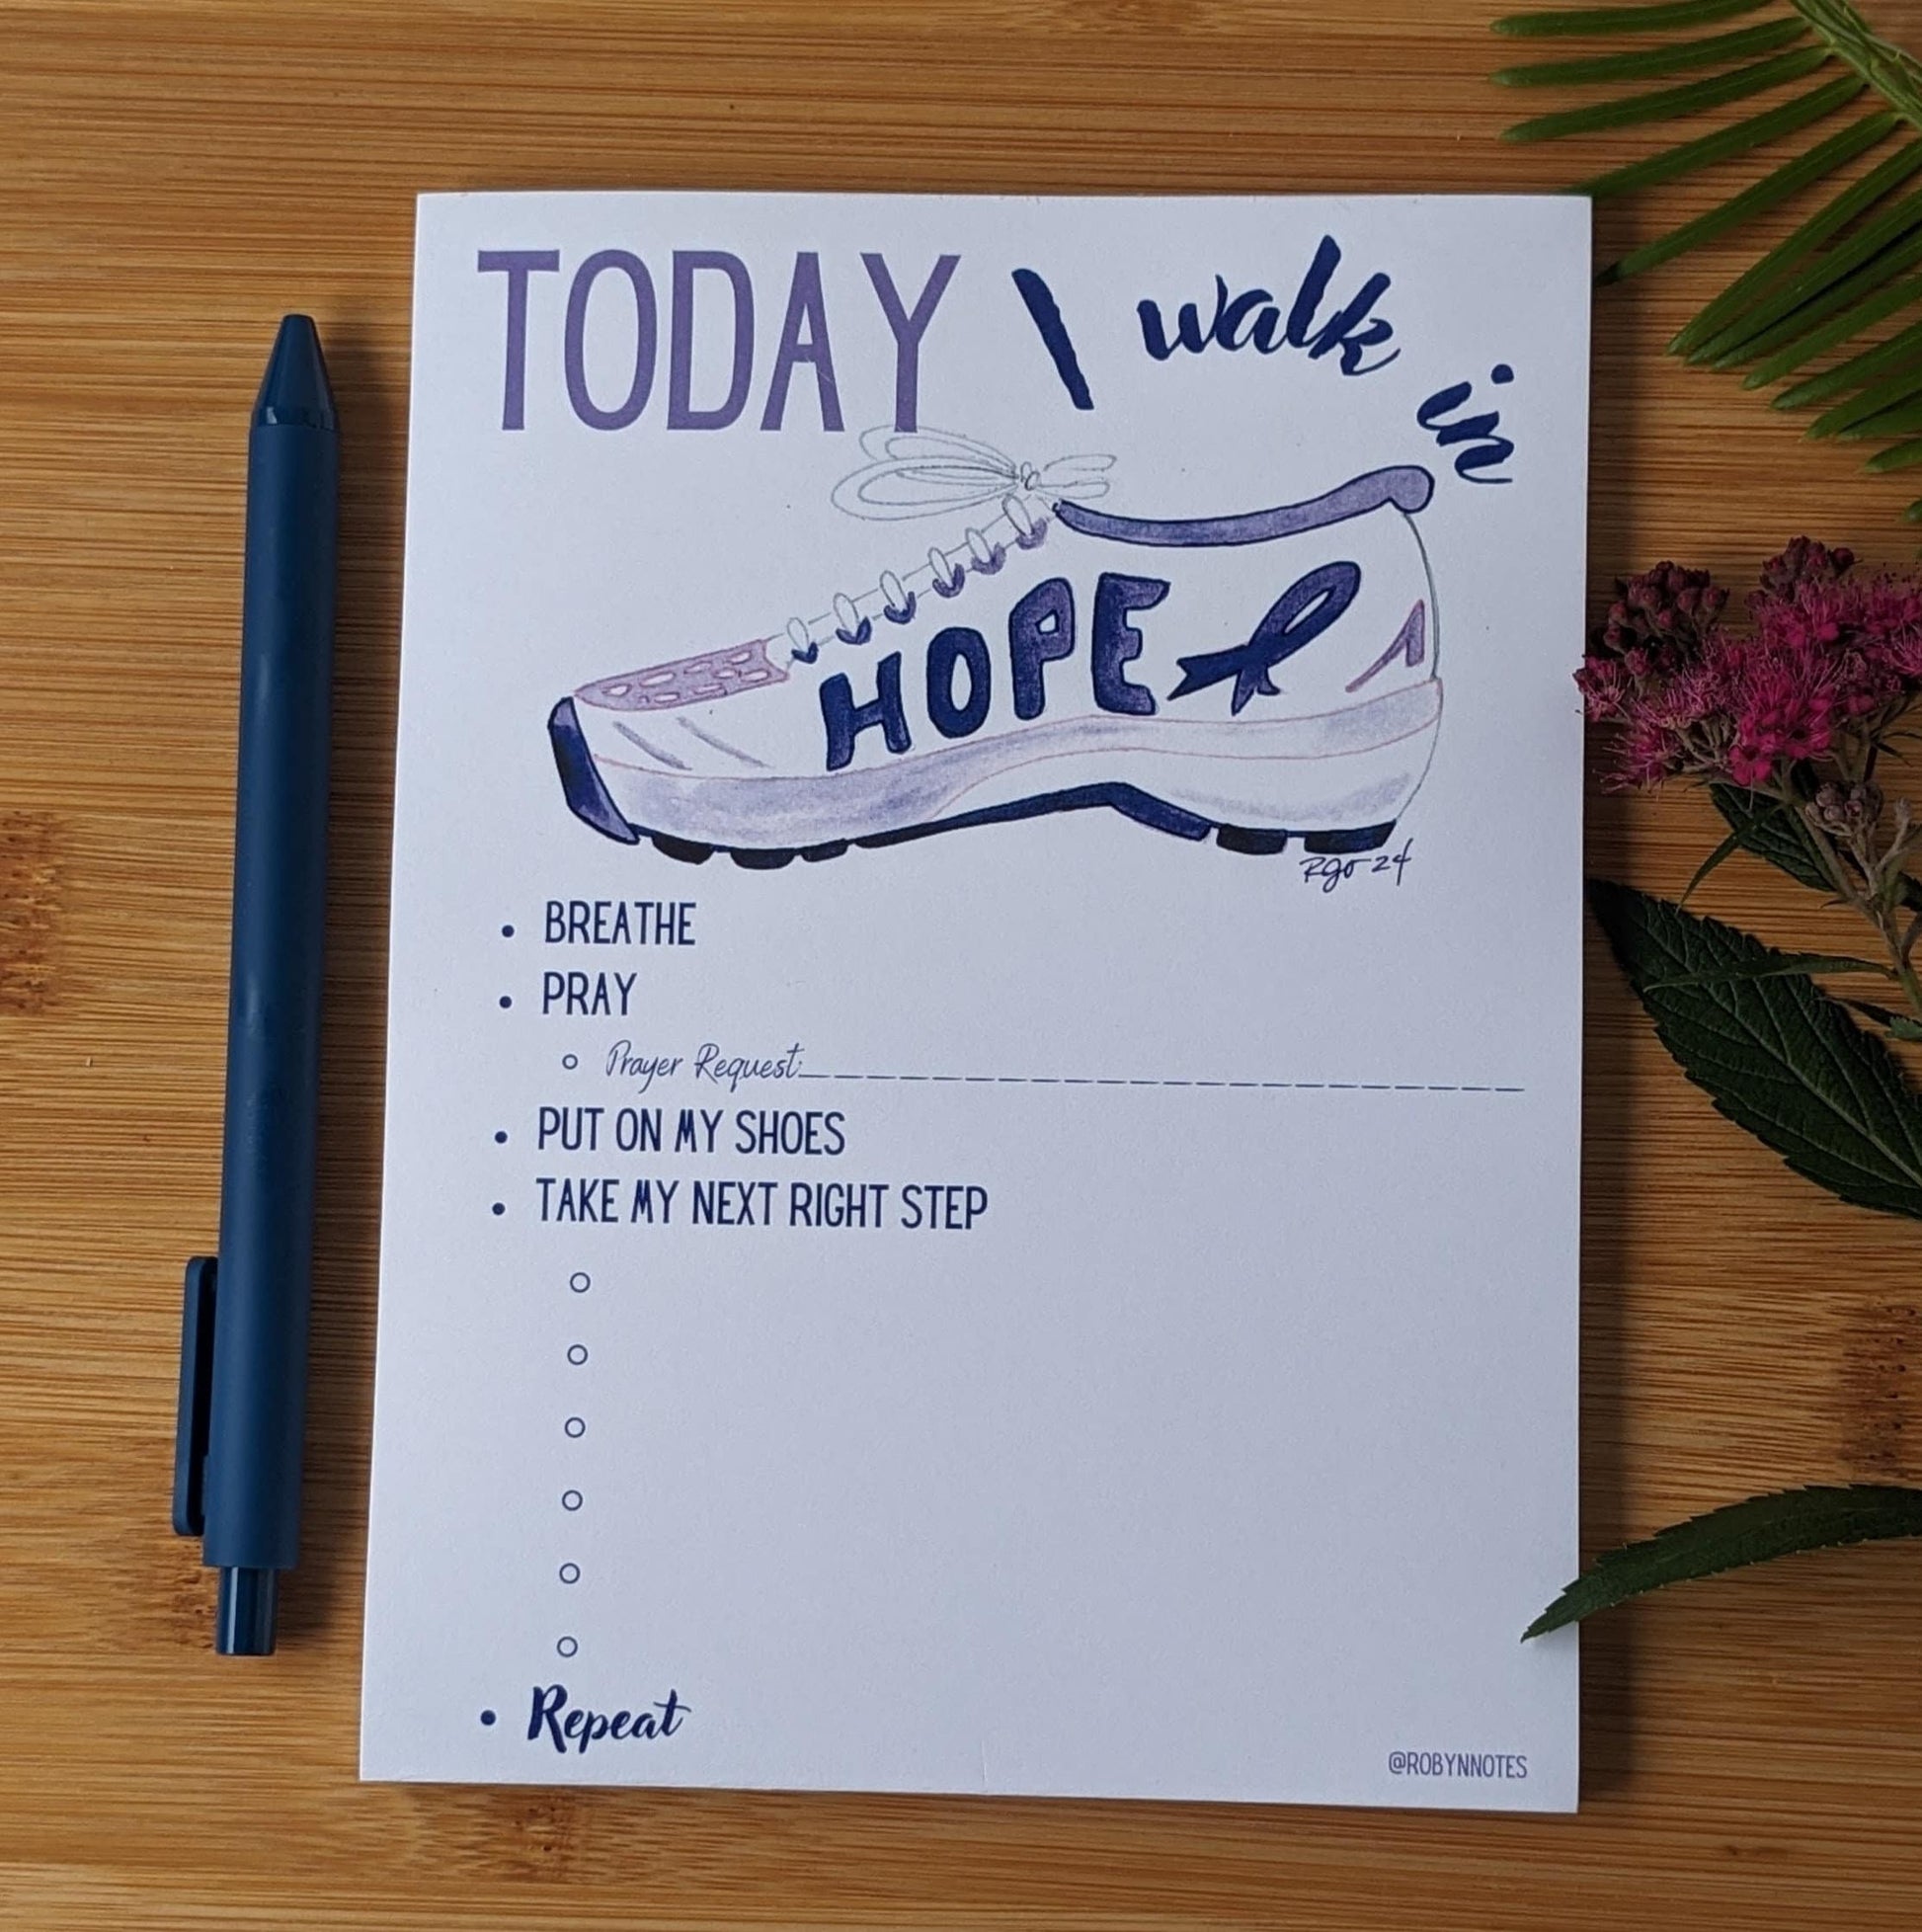 TODAY I walk in
HOPE
Rgo 24
• BREATHE
• PRAY
○ Prayer Request:_______________________
• PUT ON MY SHOES
• TAKE MY NEXT RIGHT STEP
○
○
○
○
○
○
• Repeat
@ROBYNNOTES